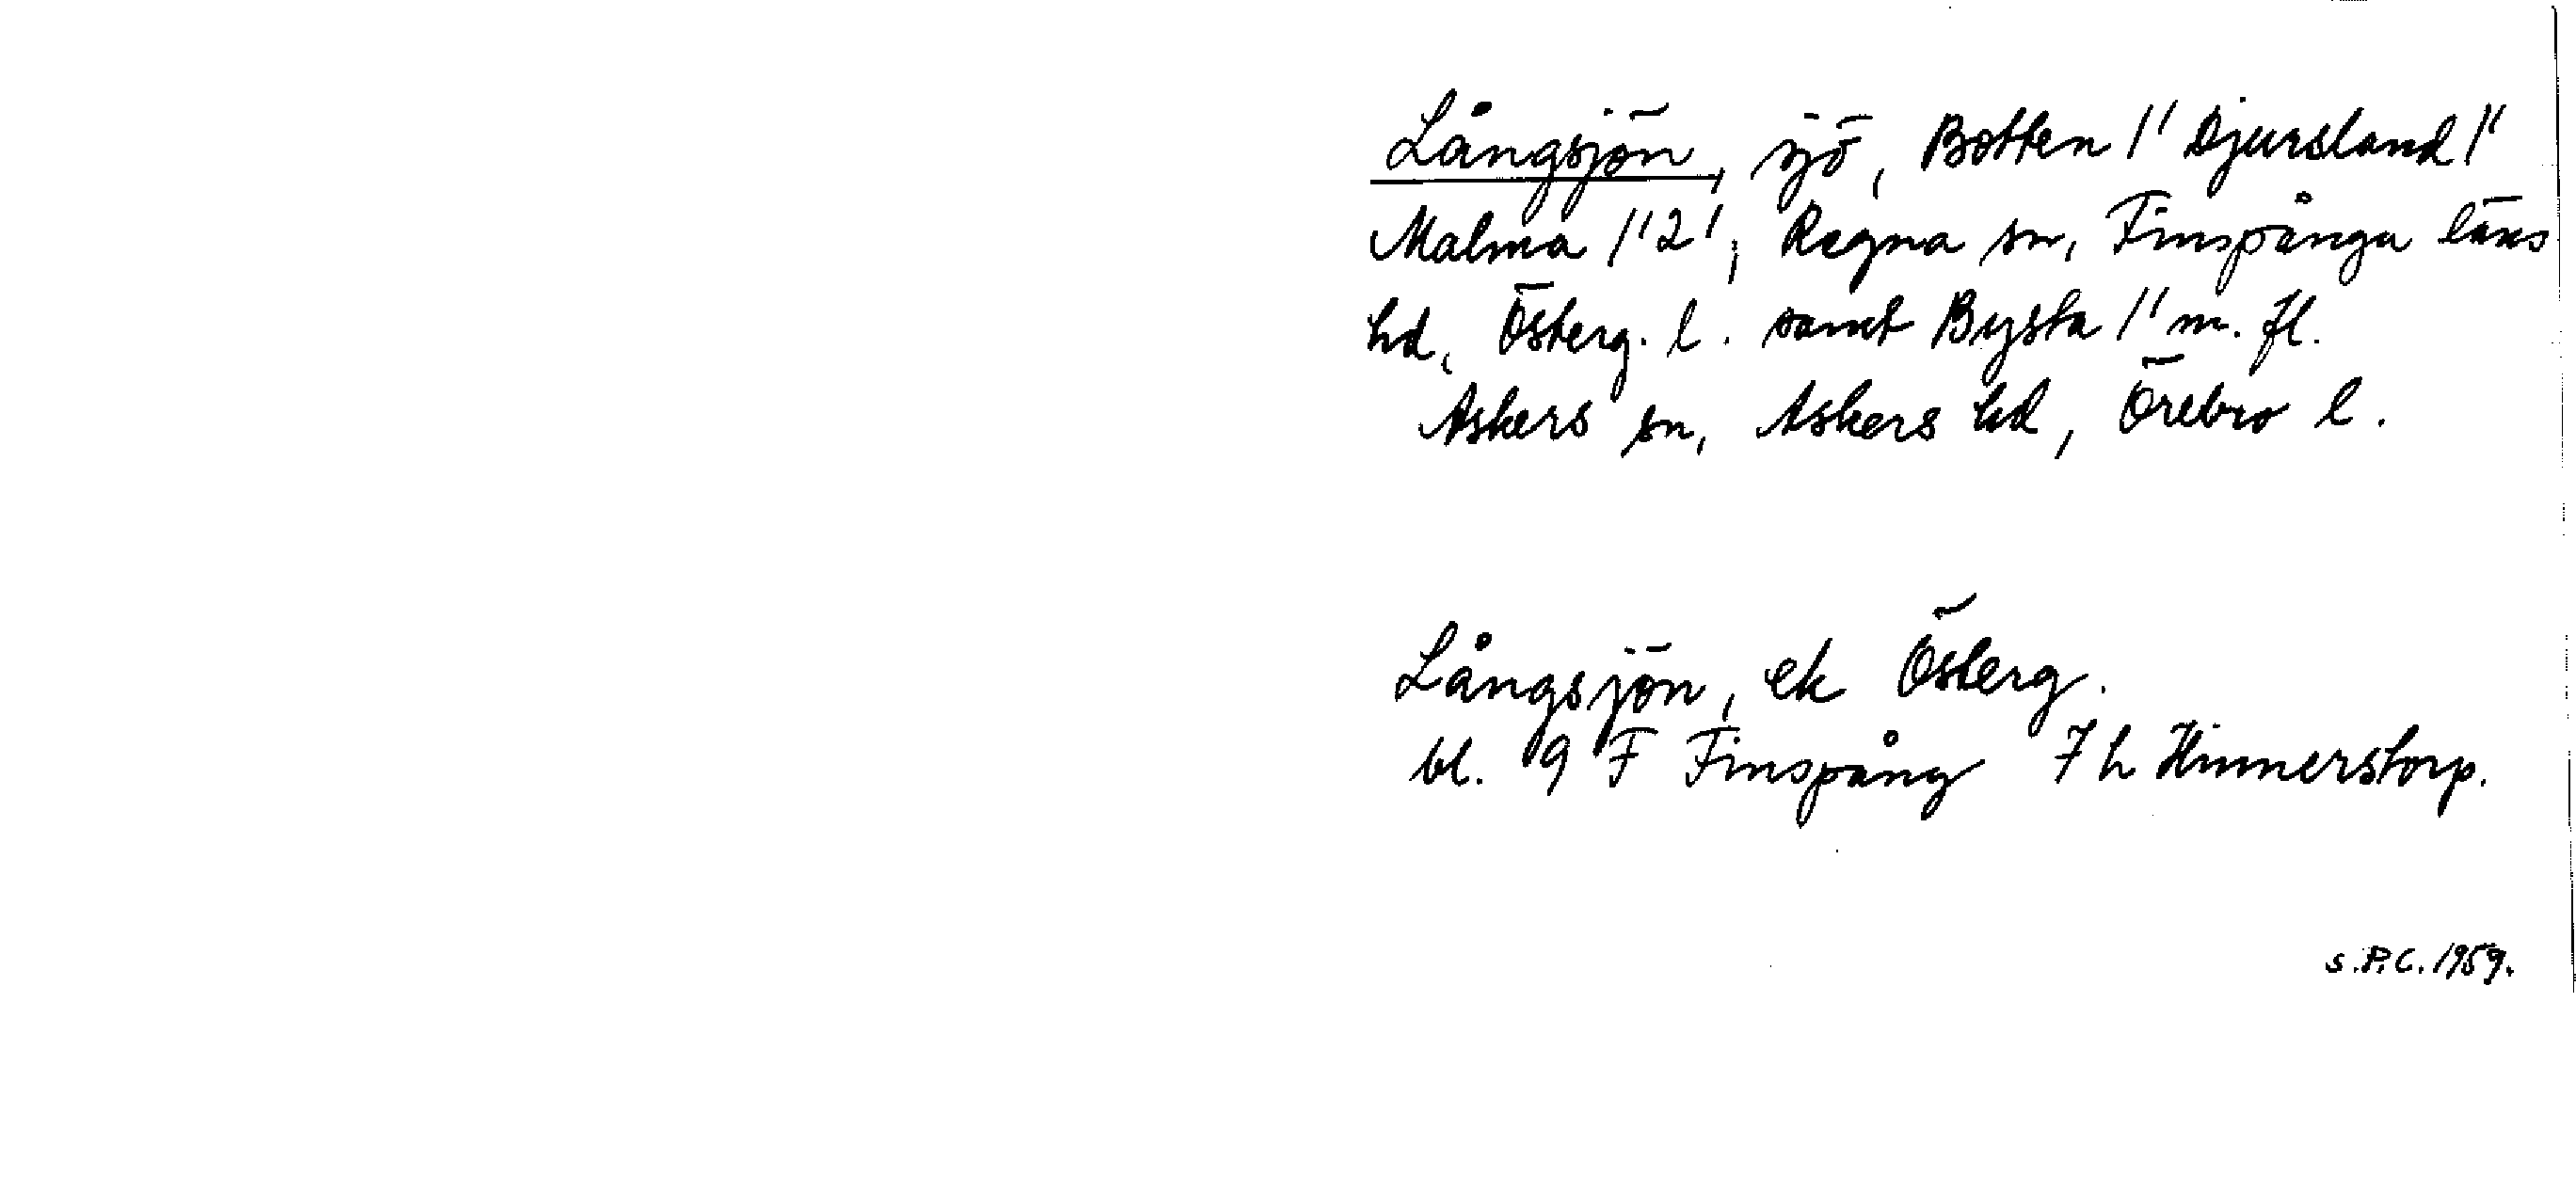 Långsjön, sjö, Botten 1/1 Djursland 1/1
Malma 1/1 2/1, Regna sn, Finspånga läns
hd, Österg. l. samt Bysta 1/1 m. fl.
Askers sn, Askers hd, Örebro l.
Långsjön, ek Österg.
bl. 9 F Finspång 7 h Hinnerstorp.
s.P.C. 1959.